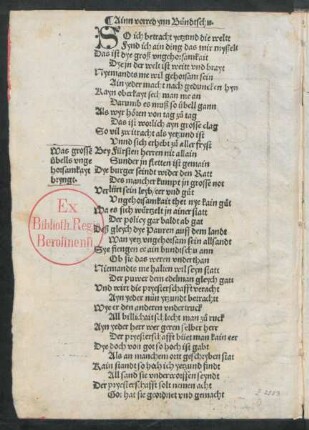 ¶Ainn vorred zum Bündtschu.
SO ich betracht yetzund die welt
Fynd ich ain ding das mir myfelt
Das ist dye groß vngehorsamkait
Dye in der welt ist weitt vnd brayt
Nyemandts me wil gehorsam sein
Ain yeder macht nach geduncken hyn
Kayn oberkayt sech man me an
Darumb es muß so übell gann
Als wyr hören von tag zů tag
Das ist worlich ayn grosse clag
So vil zwitracht als yetzund ist
Vnnd sich erhebt zů aller fryst
Was grosse übells vnge horsamkayt bryngt.
Bey Fürsten herren nit allain
Sunder in stetten ist gemain
Dye burger seindt wider den Ratt
Des mancher kumpt in grosse not
Verlürt sein leyb/eer vnd gůt
Vngehorsamkait thet nye kain gůt
Wa es sich würtzelt in ainer statt
Der policy gar bald ab gat
Deß gleych dye Pauren auff dem landt
Wan yetz vngehorsam sein allsandt
Sye fiengen es ain bundtschu ann
Ob sie das wetten vnderthan
Niemandts me halten wil seyn statt
Der puwer dem edelman gleych gatt
Vnd wirt die pryesterschafft veracht
Ayn yeder nün yetzund betracht
Wye er den anderen vndertruck
All billichait schlecht man zů ruck
Ayn yeder herr wer geren selber herr
Der pryesterschafft büet man kain eer
Dye doch von got so hoch ist gabt
Als an manchem ort geschryben stat
Kain standt so hoch ich yetzund findt
All sand sie vnderworffen seyndt
Der pryesterschafft solt nemen acht
Got hat sie geordnet vnd gemacht
Ex
Biblioth. Reg.
Berolinensi